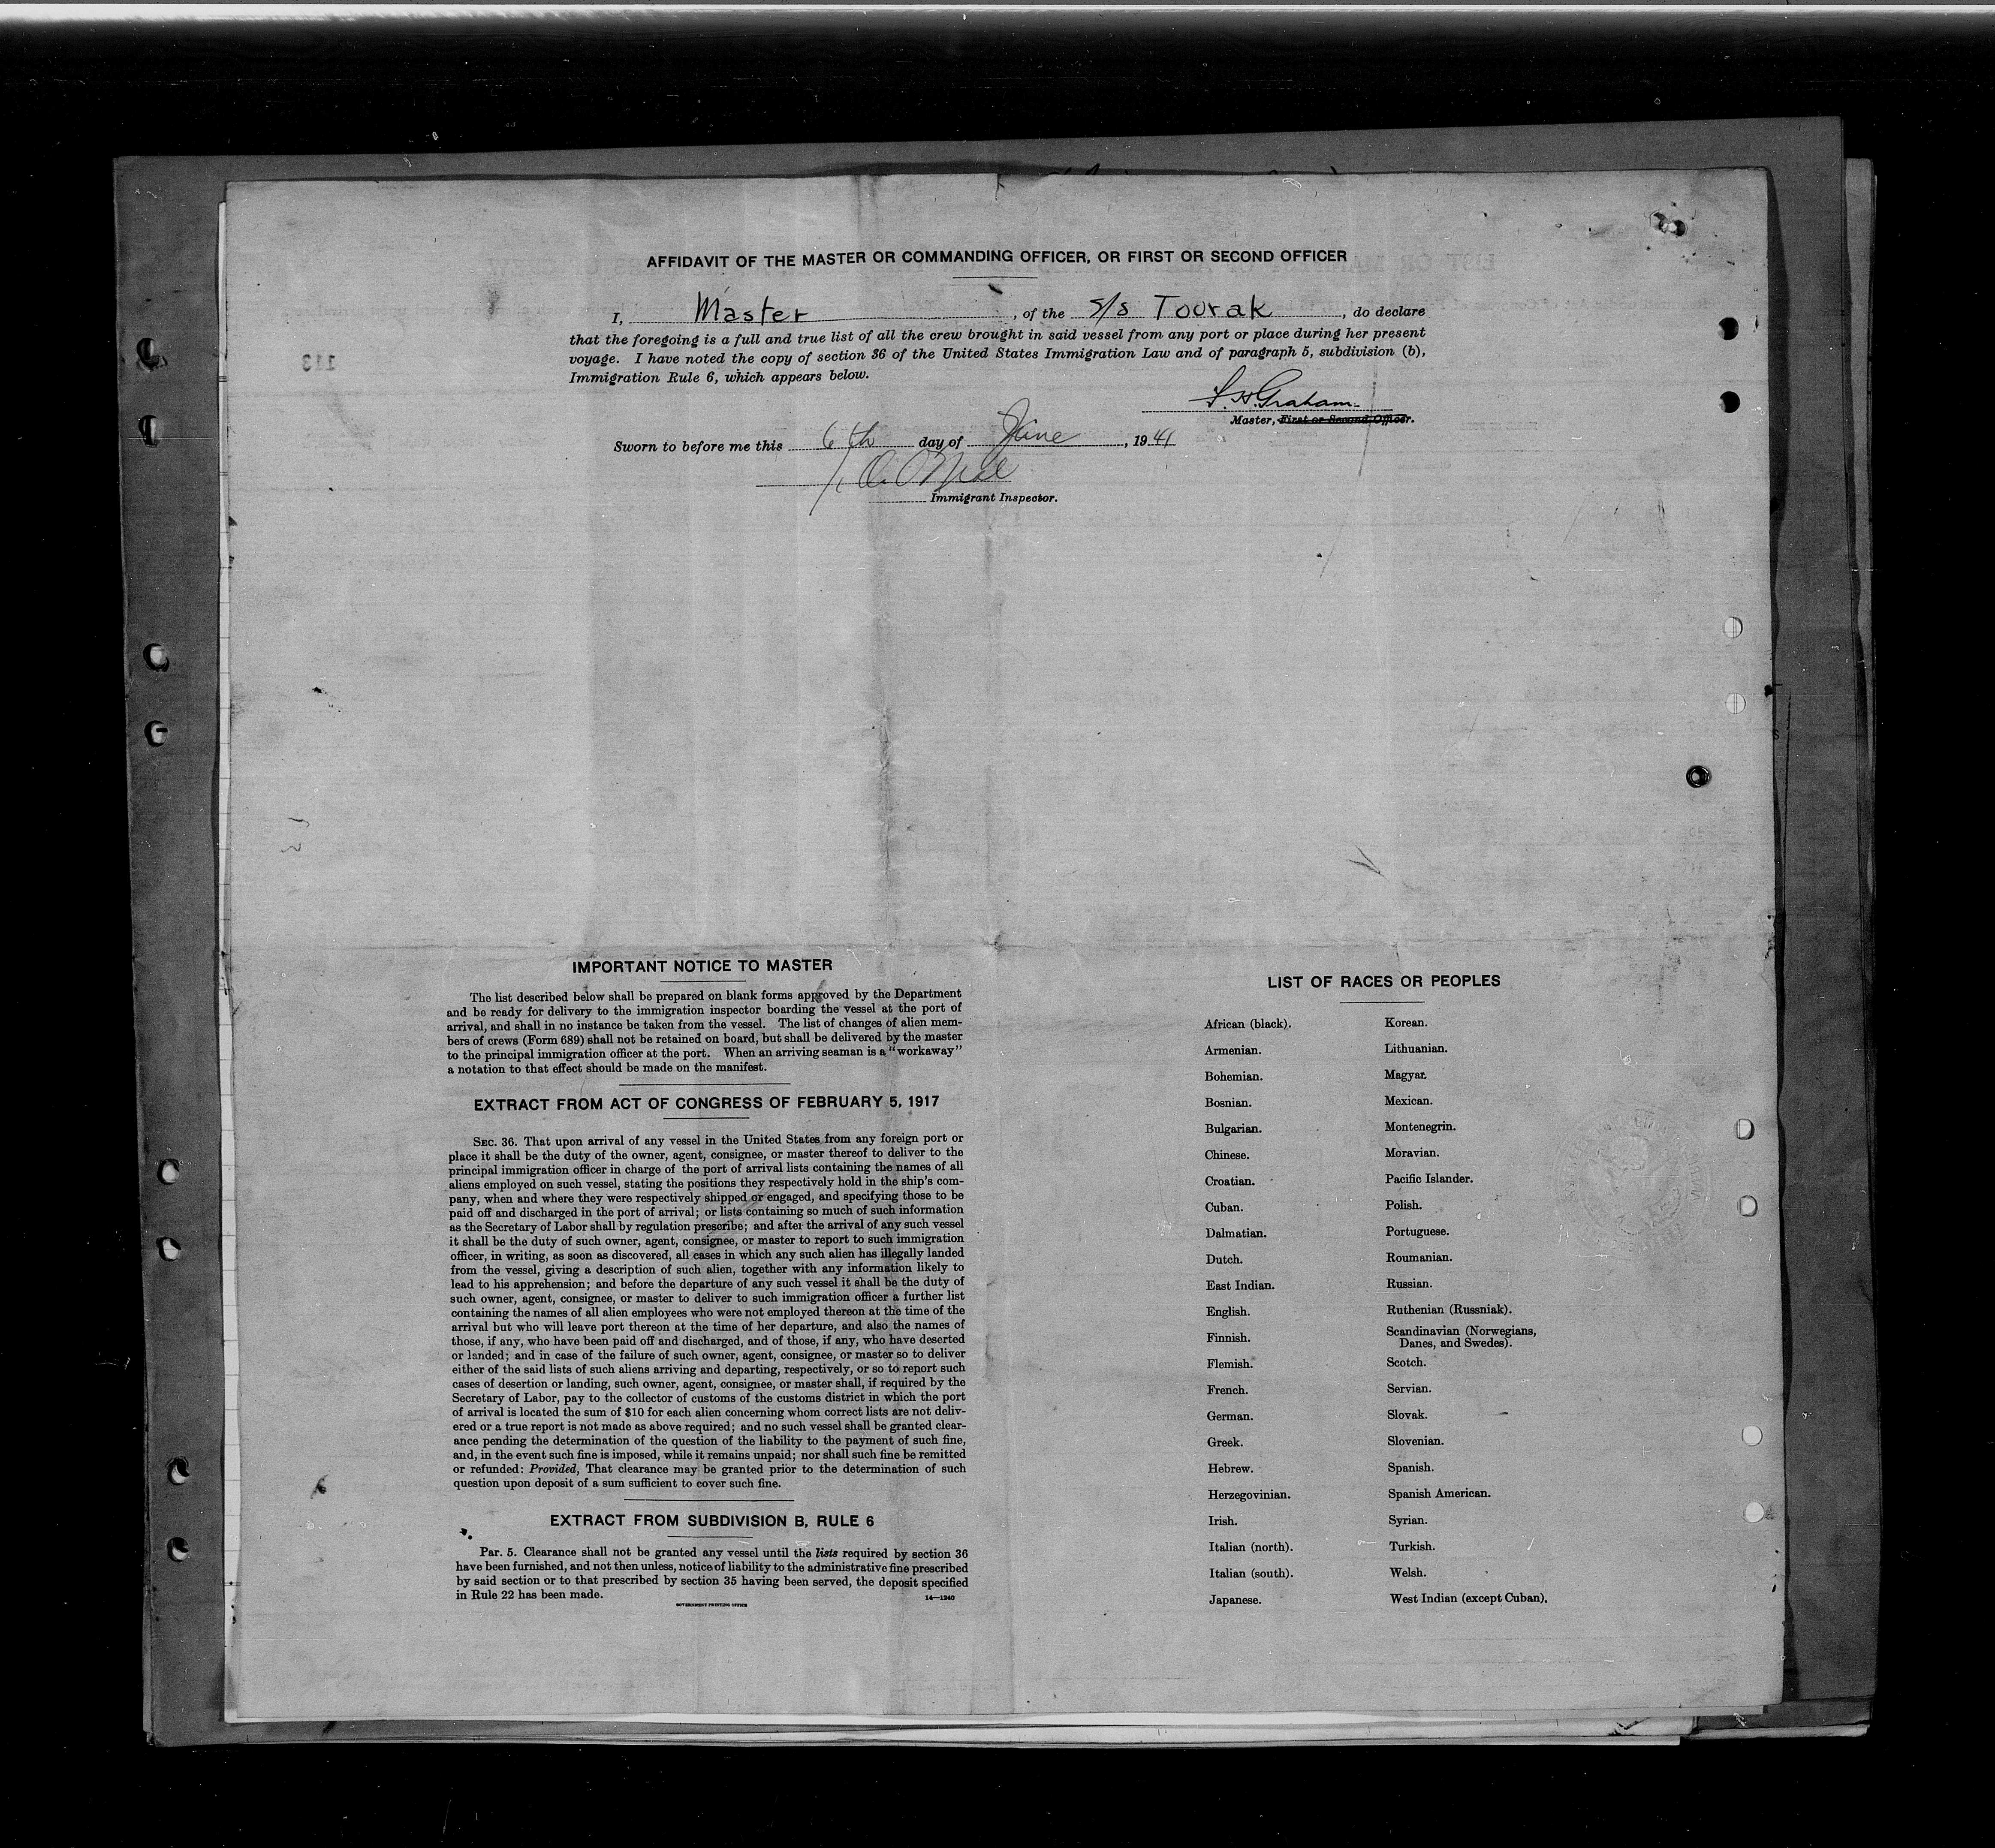 AFFIDAVIT OF THE MASTER OR COMMANDING OFFICER, OR FIRST OR SECOND OFFICER
I, Master, of the S/S Toorak, do declare
that the foregoing is a full and true list of all the crew brought in said vessel from any port or place during her present
voyage. I have noted the copy of section 36 of the United States Immigration Law and of paragraph 5, subdivision (b),
Immigration Rule 6, which appears below.
Graham
Master, First or Second Officer.
Sworn to before me this 6th day of June, 1941
Immigrant Inspector.
113
IMPORTANT NOTICE TO MASTER
The list described below shall be prepared on blank forms approved by the Department
and be ready for delivery to the immigration inspector boarding the vessel at the port of
arrival, and shall in no instance be taken from the vessel. The list of changes of alien mem-
bers of crews (Form 689) shall not be retained on board, but shall be delivered by the master
to the principal immigration officer at the port. When an arriving seaman is a "workaway"
a notation to that effect should be made on the manifest.
EXTRACT FROM ACT OF CONGRESS OF FEBRUARY 5, 1917
SEC. 36. That upon arrival of any vessel in the United States from any foreign port or
place it shall be the duty of the owner, agent, consignee, or master thereof to deliver to the
principal immigration officer in charge of the port of arrival lists containing the names of all
aliens employed on such vessel, stating the positions they respectively hold in the ship's com-
pany, when and where they were respectively shipped or engaged, and specifying those to be
paid off and discharged in the port of arrival; or lists containing so much of such information
as the Secretary of Labor shall by regulation prescribe; and after the arrival of any such vessel
it shall be the duty of such owner, agent, consignee, or master to report to such immigration
officer, in writing, as soon as discovered, all cases in which any such alien has illegally landed
from the vessel, giving a description of such alien, together with any information likely to
lead to his apprehension; and before the departure of any such vessel it shall be the duty of
such owner, agent, consignee, or master to deliver to such immigration officer a further list
containing the names of all alien employees who were not employed thereon at the time of the
arrival but who will leave port thereon at the time of her departure, and also the names of
those, if any, who have been paid off and discharged, and of those, if any, who have deserted
or landed; and in case of the failure of such owner, agent, consignee, or master so to deliver
either of the said lists of such aliens arriving and departing, respectively, or so to report such
cases of desertion or landing, such owner, agent, consignee, or master shall, if required by the
Secretary of Labor, pay to the collector of customs of the customs district in which the port
of arrival is located the sum of $10 for each alien concerning whom correct lists are not deliv-
ered or a true report is not made as above required; and no such vessel shall be granted clear-
ance pending the determination of the question of the liability to the payment of such fine,
and, in the event such fine is imposed, while it remains unpaid; nor shall such fine be remitted
or refunded: Provided, That clearance may be granted prior to the determination of such
question upon deposit of a sum sufficient to cover such fine.
EXTRACT FROM SUBDIVISION B, RULE 6
Par. 5. Clearance shall not be granted any vessel until the lists required by section 36
have been furnished, and not then unless, notice of liability to the administrative fine prescribed
by said section or to that prescribed by section 35 having been served, the deposit specified
in Rule 22 has been made.
GOVERNMENT PRINTING OFFICE 14—1240
LIST OF RACES OR PEOPLES
African (black).
Armenian.
Bohemian.
Bosnian.
Bulgarian.
Chinese.
Croatian.
Cuban.
Dalmatian.
Dutch.
East Indian.
English.
Finnish.
Flemish.
French.
German.
Greek.
Hebrew.
Herzegovinian.
Irish.
Italian (north).
Italian (south).
Japanese.
Korean.
Lithuanian.
Magyar.
Mexican.
Montenegrin.
Moravian.
Pacific Islander.
Polish.
Portuguese.
Roumanian.
Russian.
Ruthenian (Russniak).
Scandinavian (Norwegians,
Danes, and Swedes).
Scotch.
Servian.
Slovak.
Slovenian.
Spanish.
Spanish American.
Syrian.
Turkish.
Welsh.
West Indian (except Cuban).